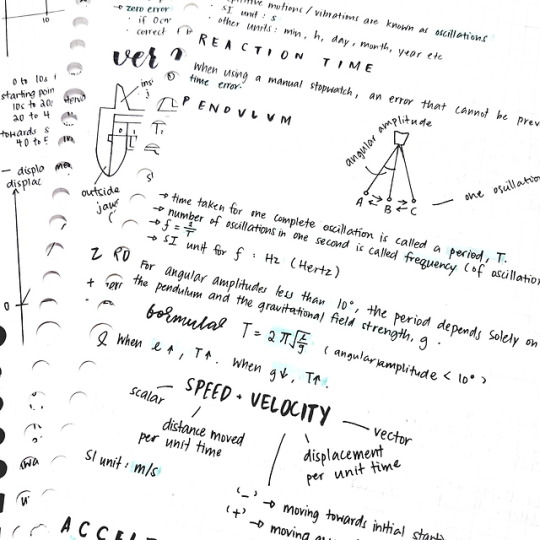 10
→ zero error
· if 0 cm
· correct
motions / vibrations are known as oscillations
· SI unit : s
· other units : min, h, day, month, year etc
REACTION TIME
When using a manual stopwatch, an error that cannot be
time error.
ver
0 to 10s
starting poin
10s to 20
20 to 4
towards s
40 to
displa
displac
0
outside
jaw
PENDULUM
angular amplitude
A B C
one oscillation
→ time taken for one complete oscillation is called a period, T.
→ number of oscillations in one second is called frequency (of oscillation
→ f = 1/T
→ SI unit for f : Hz (Hertz)
For angular amplitudes less than 10°, the period depends solely on
the pendulum and the gravitational field strength, g.
formula T = 2π√(l/g) (angular amplitude < 10°)
When l ↑, T↑. When g↓, T↑.
SPEED + VELOCITY
scalar
distance moved
per unit time
SI unit : m/s
vector
displacement
per unit time
'-' → moving towards initial start
'+' → moving
ACCEL